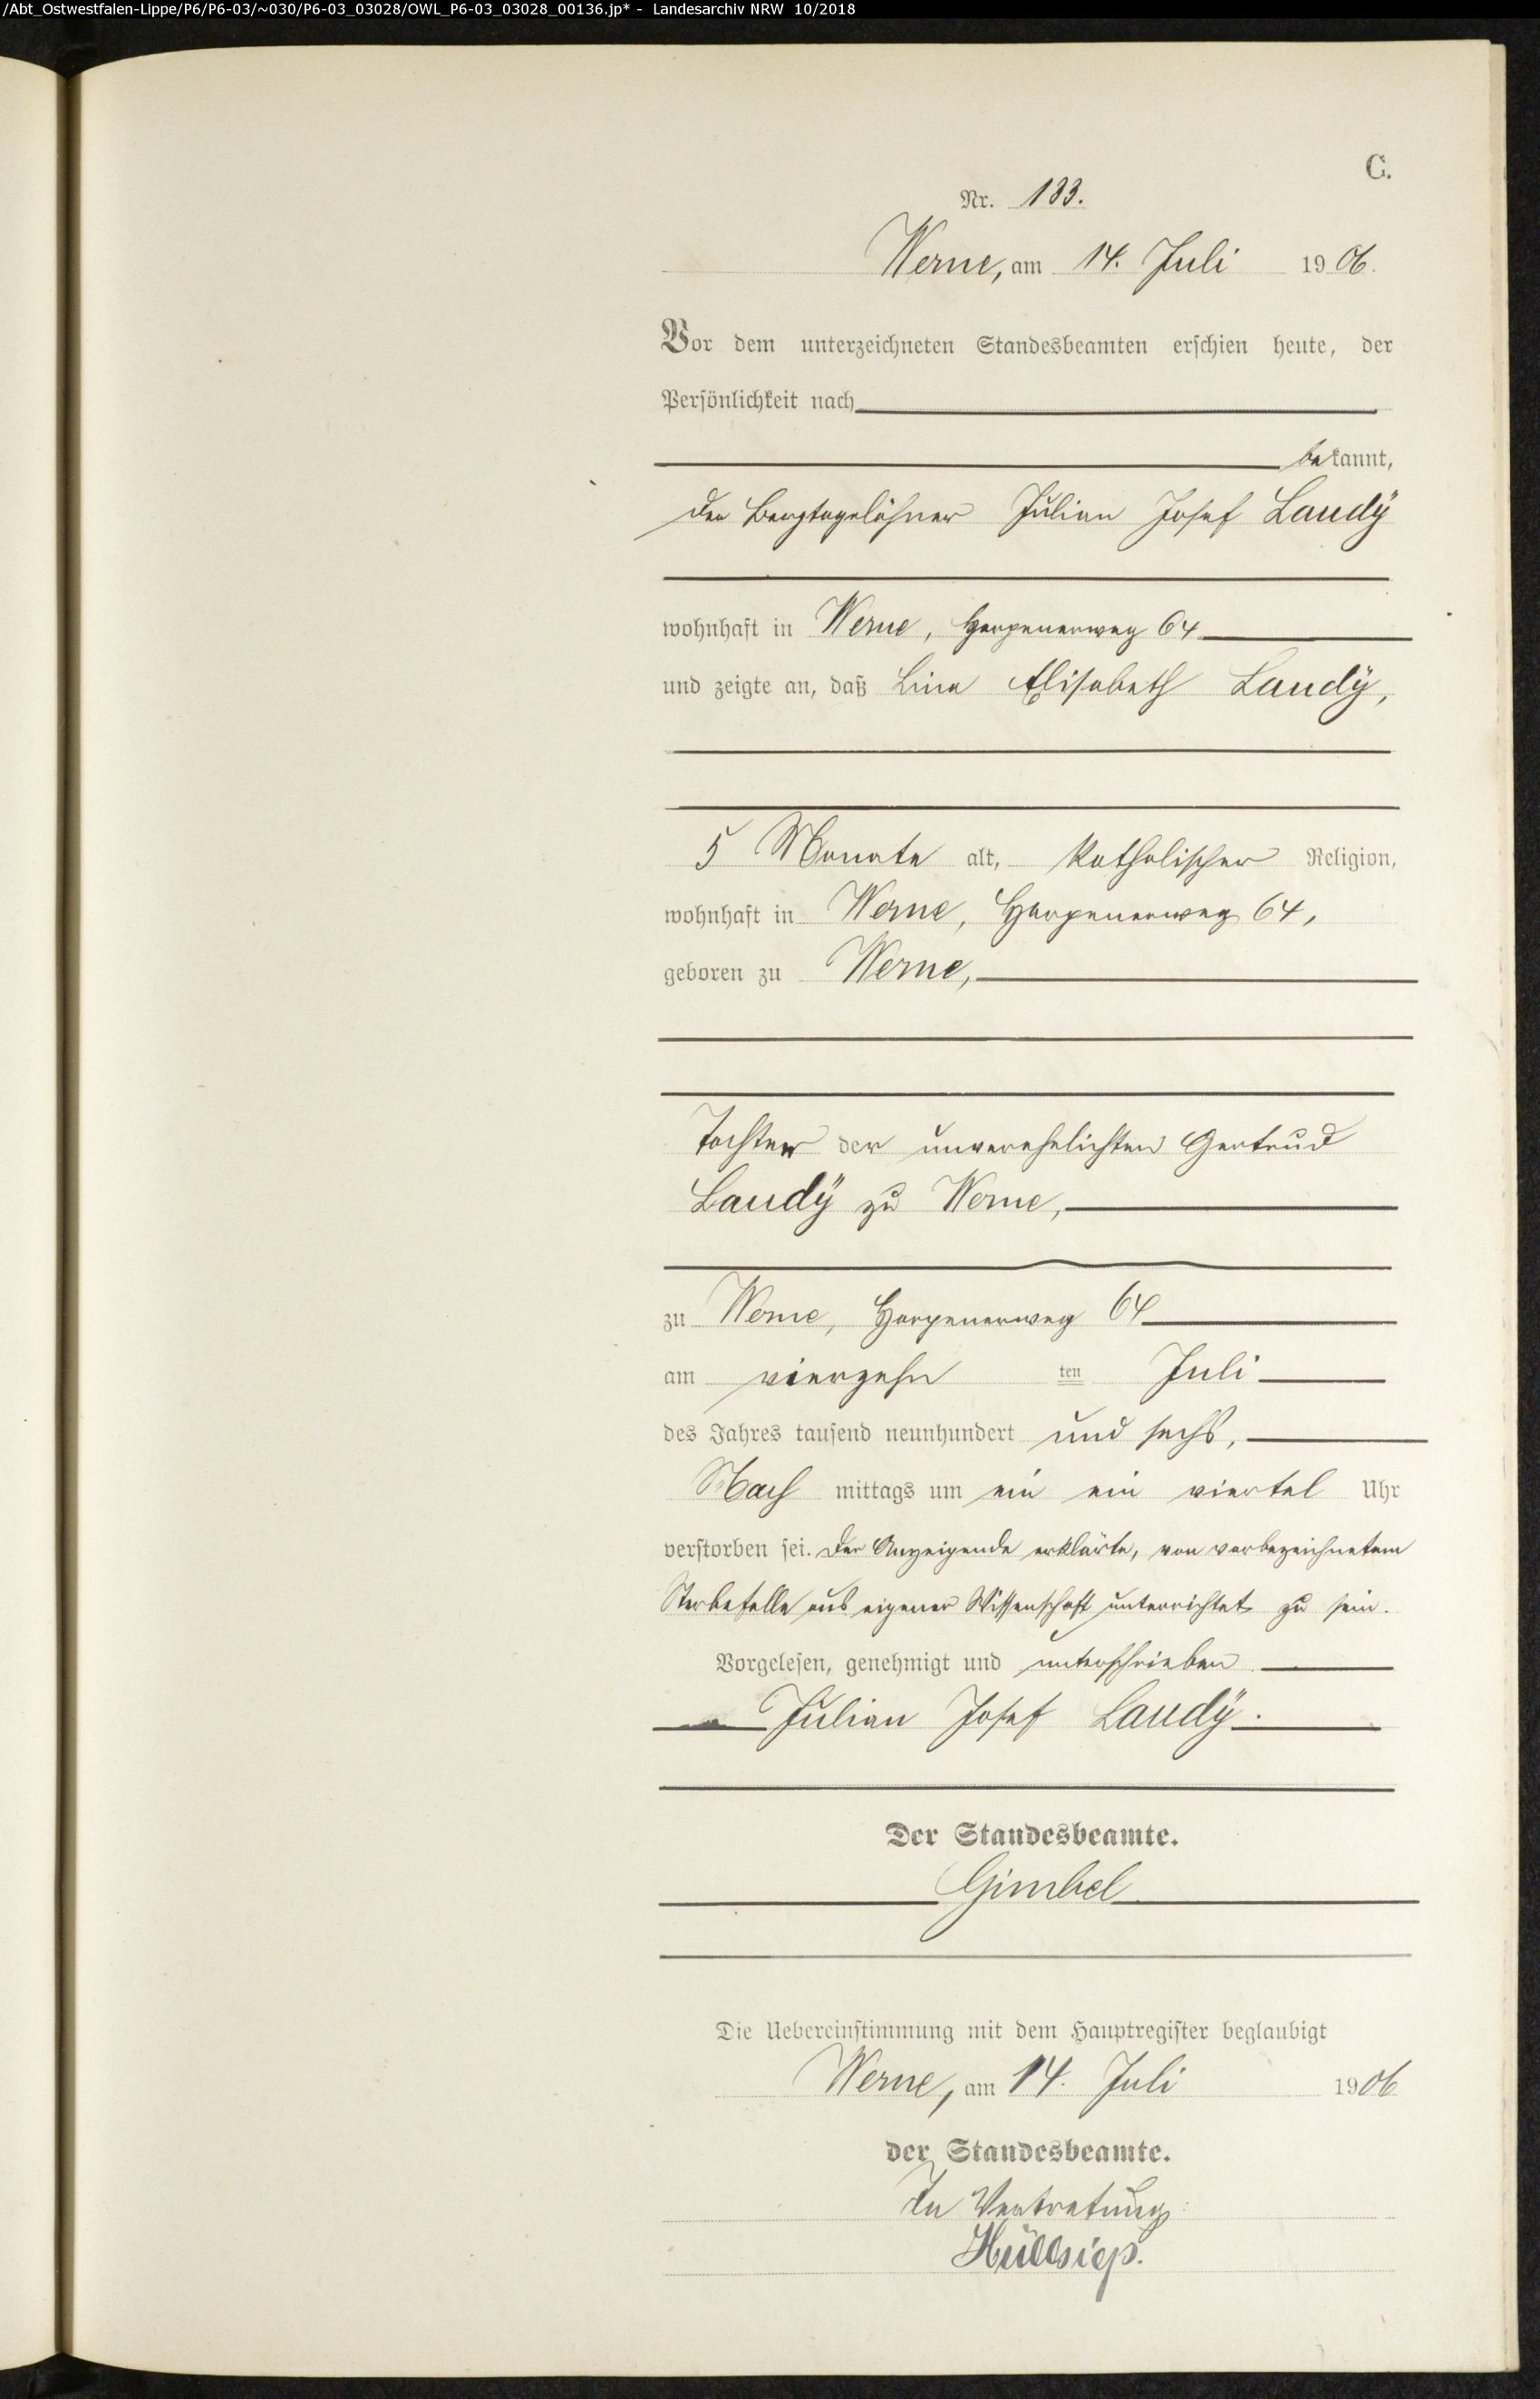 /Abt_Ostwestfalen-Lippe/P6/P6-03/~030/P6-03_03028/OWL_P6-03_03028_00136.jp* - Landesarchiv NRW 10/2018
C.
Nr. 133.
Werne, am 14. Juli 1906.
Vor dem unterzeichneten Standesbeamten erschien heute, der
Persönlichkeit nach
bekannt,
der Bergtagelöhner Julian Josef Laudÿ
wohnhaft in Werne, Harpenerweg 64
und zeigte an, daß Lina Elisabeth Laudÿ,
5 Monate alt, katholischer Religion,
wohnhaft in Werne, Harpenerweg 64,
geboren zu Werne,
Tochter der unverehelichten Gertrud
Laudÿ zu Werne,
zu Werne, Harpenerweg 64
am vierzehn ten Juli
des Jahres tausend neunhundert und sechs,
Nach mittags um ein ein viertel Uhr
verstorben sei. Der Anzeigende erklärte, von vorbezeichnetem
Sterbefalle aus eigener Wissenschaft unterrichtet zu sein.
Vorgelesen, genehmigt und unterschrieben
Julian Josef Laudÿ.
Der Standesbeamte.
Gimbel
Die Uebereinstimmung mit dem Hauptregister beglaubigt
Werne, am 14. Juli 1906
der Standesbeamte.
In Vertretung:
Hüllsiep.